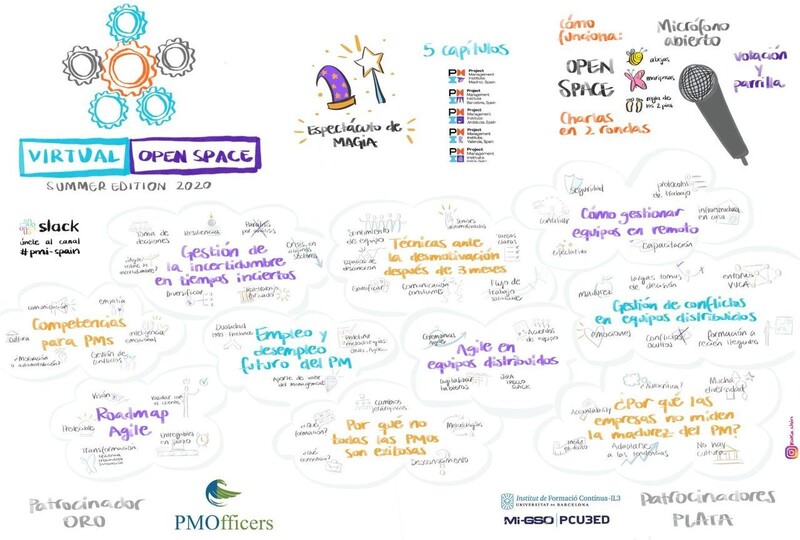 VIRTUAL OPEN SPACE
SUMMER EDITION 2020
Espectáculo de
MAGIA
5 capítulos
Project
Management
Institute
Madrid, Spain
Project
Management
Institute
Barcelona, Spain
Project
Management
Institute
Andalucía, Spain
Project
Management
Institute
Valencia, Spain
Project
Management
Institute
Spain
cómo
funciona:
OPEN
SPACE
abejas
mariposas
Charlas
en 2 rondas
Micrófono
abierto
votación
y
parrilla
slack
únete al canal
#pmi-spain
Toma de
decisiones
Resiliencia
Parálisis
por análisis
Gestión de
la incertidumbre
en tiempos inciertos
Crisis en
algunos
sectores
Diversificar
Sentimiento
de equipo
Técnicas ante
la desmotivación
después de 3 meses
Tareas
claras
Espacios de
desconexión
Gamificar
Comunicación
constante
Flujo de
trabajo
Seguridad
protocolos
de trabajo
Cómo gestionar
equipos en remoto
infraestructura
en casa
conciliar
capacitación
comunicación
empatía
Competencias
para PMs
cultura
inteligencia
emocional
Gestión de
conflictos
Dualidad
Empleo y
desempleo
futuro del PM
Aporte de valor
del management
Ceremonias
Agile
Acuerdos
de equipo
Agile en
equipos distribuidos
Digitalizar
tableros
JIRA
TRELLO
SLACK
madurez
largas tomas
de decisión
entornos
VUCA
Gestión de conflictos
en equipos distribuidos
emociones
Conflictos
ocultos
Formación a
Visión
Validar con
el cliente
Roadmap
Agile
Entregables
en plazo
Transformación
Cambios
jerárquicos
¿Qué
formación?
Metodologías
Por qué no
todas las PMOs
son exitosas
Desconocimiento
¿Autocrítica?
Mucha
diversidad
Accountability
¿Por qué las
empresas no miden
la madurez del PM?
miedo
al dato
Adaptarse
a las tendencias
No hay
cultura
Patrocinador
ORO
PMOfficers
Institut de Formació Contínua-IL3
UNIVERSITAT DE BARCELONA
MI-GSO | PCUBED
Patrocinadores
PLATA